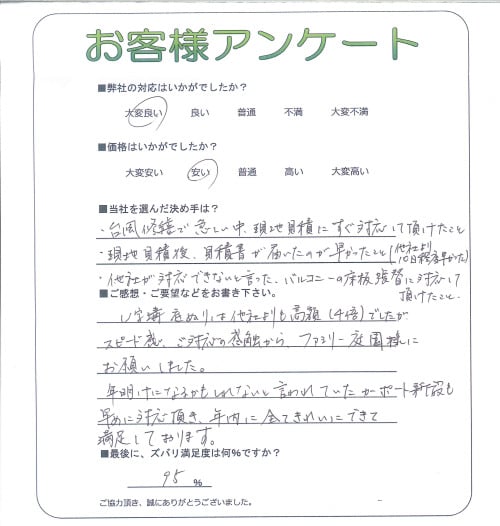 お客様アンケート
■弊社の対応はいかがでしたか？
大変良い 良い 普通 不満 大変不満
■価格はいかがでしたか？
大変安い 安い 普通 高い 大変高い
■当社を選んだ決め手は？
・台風修繕で忙しい中、現地見積にすぐ対応して頂けたこと
・現地見積後、見積書が届いたのが早かったこと(他社より10日程早かった)
・他社が対応できないと言った、バルコニーの床板張替に対応して頂けたこと。
■ご感想・ご要望などをお書き下さい。
U字溝 底ぬりは他社よりも高額(4倍)でしたが
スピード感、ご対応の感触から、ファミリー庭園様に
お願いしました。
年明けになるかもしれないと言われていたカーポート新設も
早めに対応頂き、年内に全てきれいにできて
満足しております。
■最後に、ズバリ満足度は何%ですか？
95 %
ご協力頂き、誠にありがとうございました。